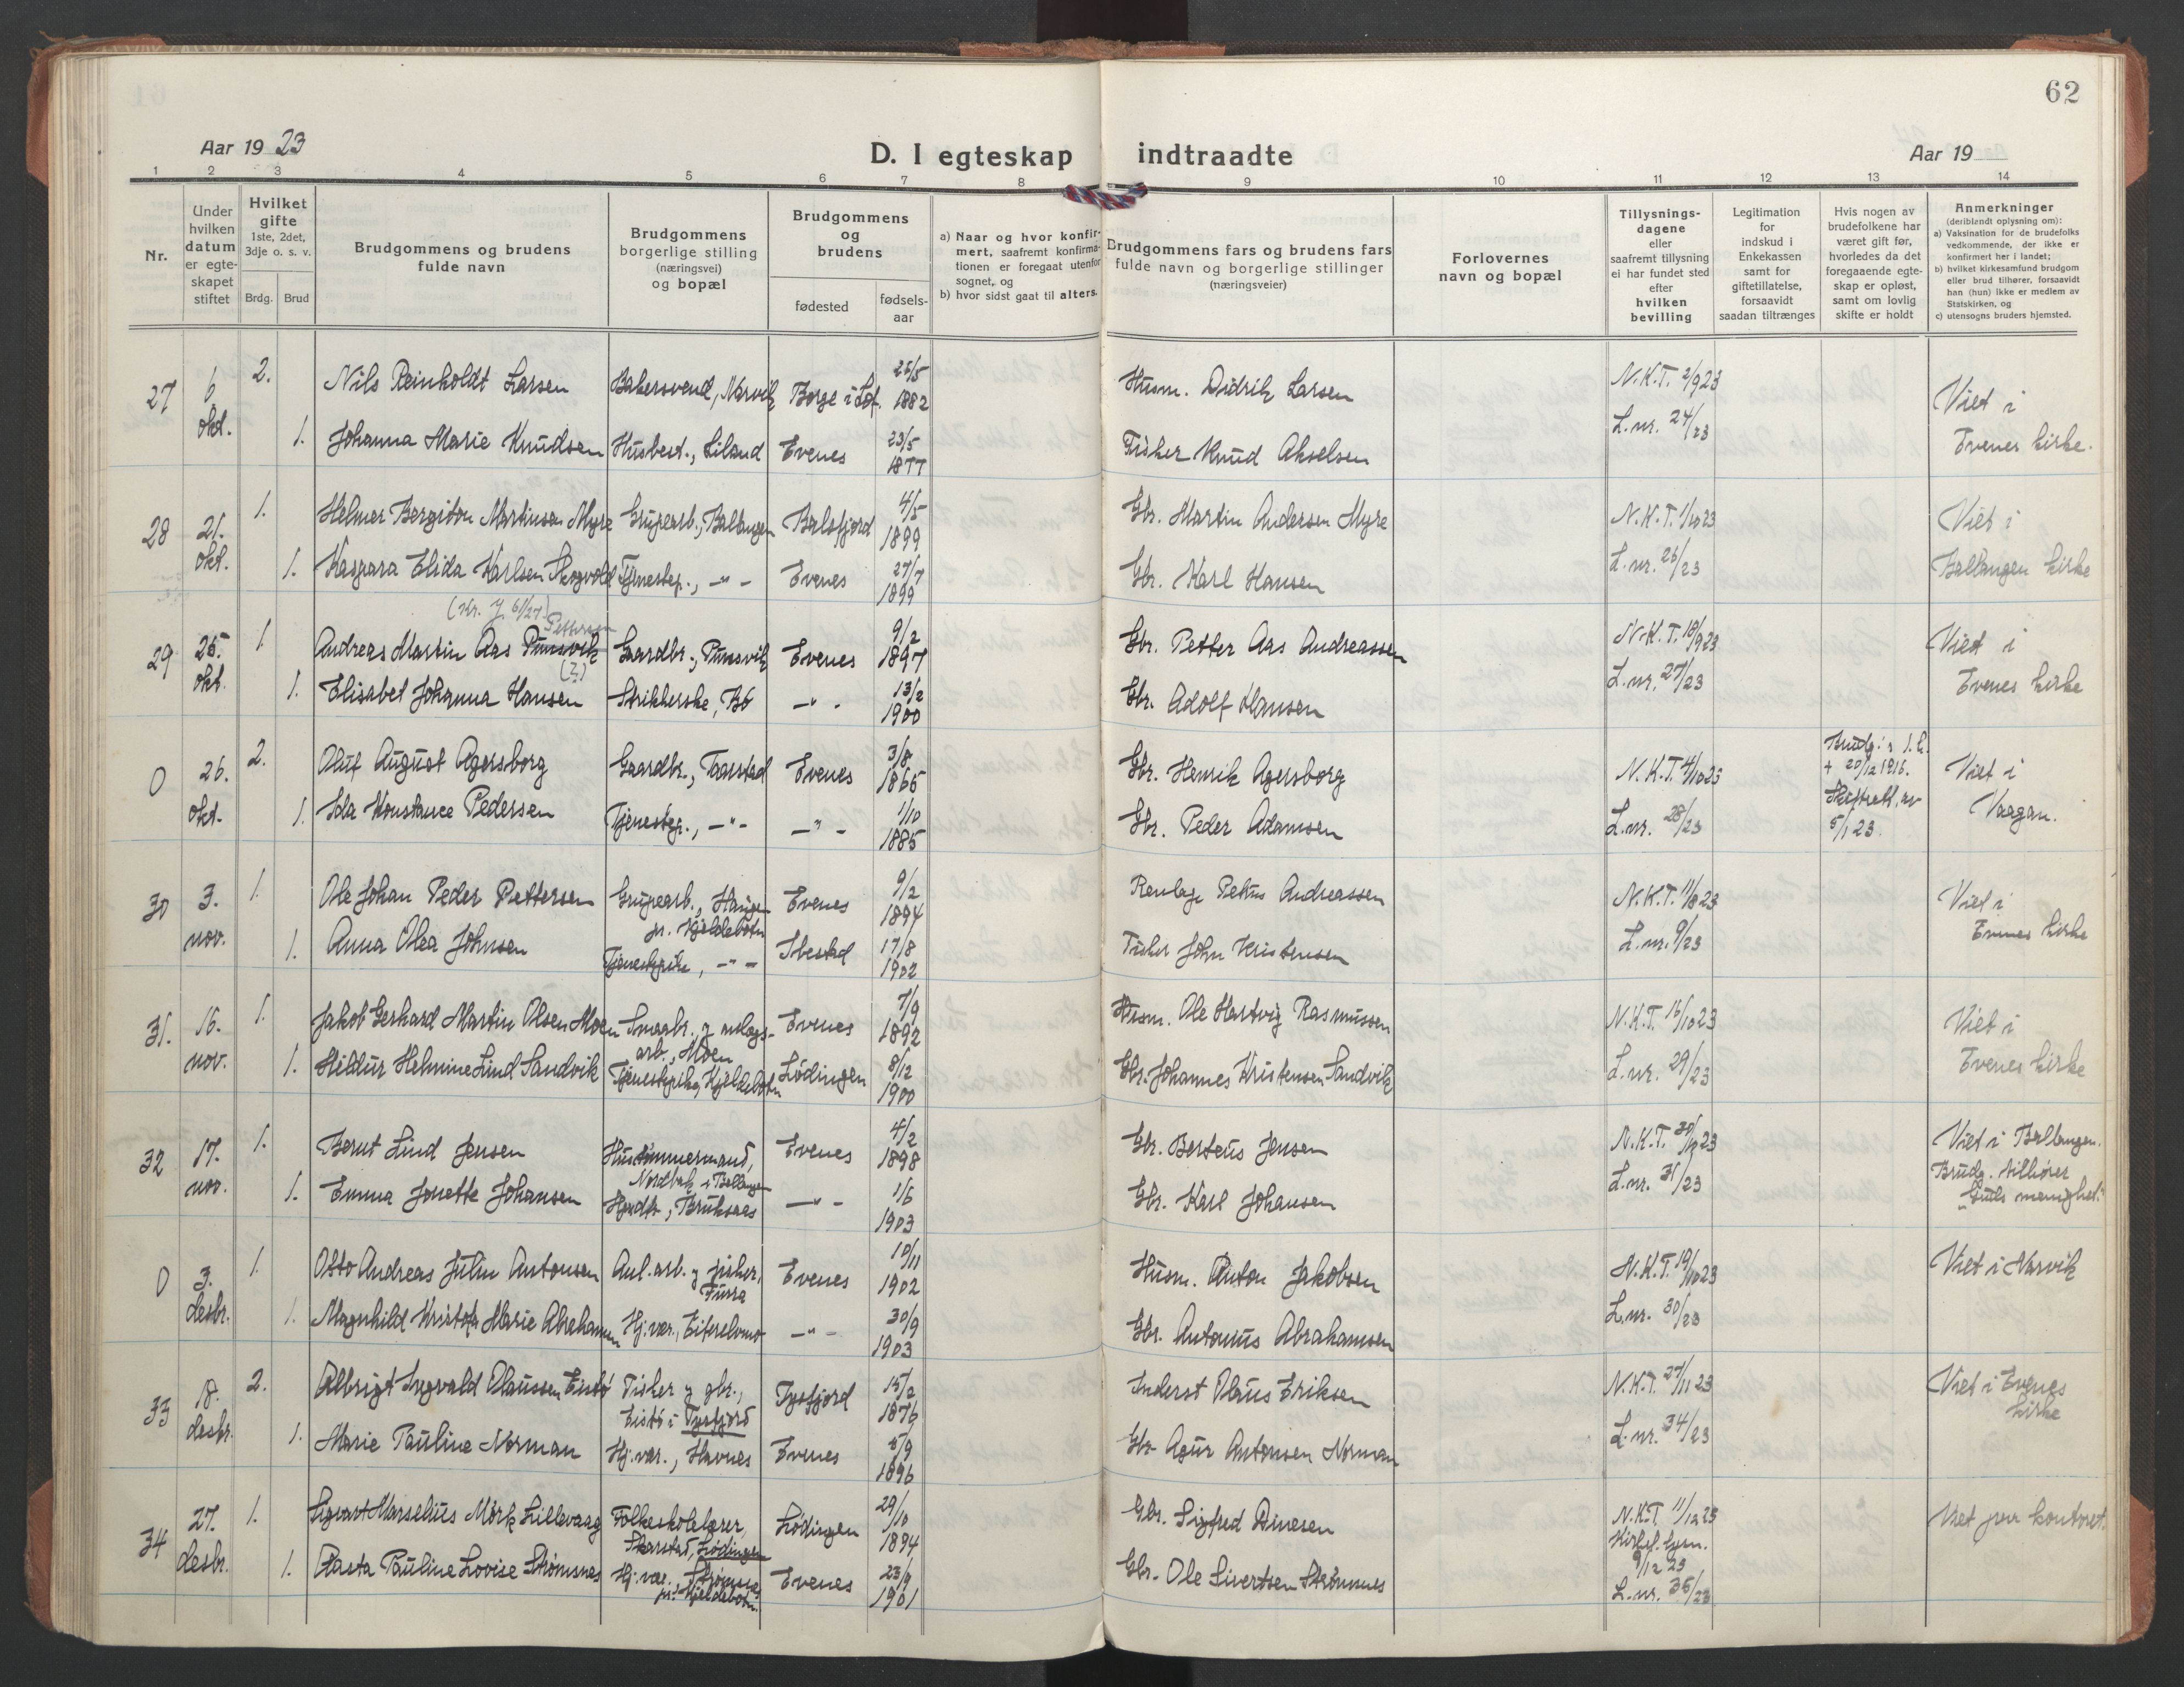 62
Aar 1923
D. I egteskap indtraadte
Aar 19
1 2 3 4 5 6 7 8 9 10 11 12 13 14
Nr.
Under hvilken datum er egteskapet stiftet
Hvilket gifte
1ste, 2det, 3dje o. s. v.
Brdg. Brud
Brudgommens og brudens fulde navn
Brudgommens borgerlige stilling (næringsvei) og bopæl
Brudgommens og brudens
fødested
fødselsaar
a) Naar og hvor konfirmert, saafremt konfirmationen er foregaat utenfor sognet, og
b) hvor sidst gaat til alters.
Brudgommens fars og brudens fars fulde navn og borgerlige stillinger (næringsveier)
Forlovernes navn og bopæl
Tillysningsdagene eller saafremt tillysning ei har fundet sted efter hvilken bevilling
Legitimation for indskud i Enkekassen samt for giftetillatelse, forsaavidt saadan tiltrænges
Hvis nogen av brudefolkene har været gift før, hvorledes da det foregaaende egteskap er opløst, samt om lovlig skifte er holdt
Anmerkninger
(deriblandt oplysning om):
a) Vaksination for de brudefolks vedkommende, der ikke er konfirmert her i landet;
b) hvilket kirkesamfund brudgom eller brud tilhører, forsaavidt han (hun) ikke er medlem av Statskirken, og
c) utensogns bruders hjemsted.
27 6 okt. 2. Nils Reinholdt Larsen Bakersvend, Narvik Borge i Lof. 25/5 1882 Husm. Didrik Larsen N.K.T. 2/9 23 Viet i
1. Johanna Marie Knudsen Husbest., Liland Evenes 23/5 1877 Fisker Knud Akselsen L.nr. 24/23 Evenes kirke.
28 21. okt. 1. Helmer Bergiton Martinsen Myre Grupearb., Ballangen Balsfjord 4/5 1899 Gbr. Martin Andersen Myre N.K.T. 1/10 23 Viet i
1. Kaspara Elida Karlsen Skogvold Tjenestep., -"- Evenes 27/7 1899 Gbr. Karl Hansen L.nr. 26/23 Ballangen kirke
Pettersen
29 25. okt. 1. Andreas Martin Aas Punsvik Gaardbr., Punsvik Evenes 9/2 1897 Gbr. Petter Aas Andreassen N.K.T. 18/9 23 Viet i
1. Elisabet Johanna Hansen Strikkerske, Bø -"- 13/2 1900 Gbr. Adolf Hansen L.nr. 27/23 Evenes kirke
0 26. okt. 2. Oluf August Agersborg Gaardbr., Taarstad Evenes 3/8 1865 Gbr. Henrik Agersborg N.K.T. 4/10 23 Brudg.s 1. h. + 20/12 1916. Viet i
1. Ida Konstance Pedersen Tjenestep., -"- -"- 1/10 1885 Gbr. Peder Adamsen L.nr. 28/23 Skifteatt. av 5/1 23. Vaagan.
30 3. nov. 1. Ole Johan Peder Pettersen Grupearb., Haugen pr. Kjeldebotn Evenes 9/2 1894 Petter Andreassen N.K.T. 11/8 23 Viet i
1. Anna Olea Johnsen Tjenestepike, -"- Ibestad 17/8 1902 Fisker John Kristensen L.nr. 9/23 Evenes kirke
31. 16. nov. 1. Jakob Gerhard Martin Olsen Moen Smaabr. og anlægsarb., Moen Evenes 7/9 1892 Husm. Ole Hartvig Rasmussen N.K.T. 16/10 23 Viet i
1. Hildur Helmine Lind Sandvik Tjenestepike, Kjeldebotn Lødingen 8/12 1900 Gbr. Johannes Kristensen Sandvik L.nr. 29/23 Evenes kirke
32 17. nov. 1. Bernt Lind Jensen Hustømmermand, i Ballangen Evenes 4/2 1898 Gbr. Berteus Jensen N.K.T. 30/10 23 Viet i Ballangen.
1. Emma Jonette Johansen Husdt., Bruksaas -"- 1/6 1903 Gbr. Karl Johansen L.nr. 31/23 Brudg. tilhører "Guds menighet."
0 3. desbr. 1. Otto Andreas Julin Antonsen Anl.arb. og fisker, Furra Evenes 10/11 1902 Husm. Anton Jakobsen N.K.T. 19/10 23 Viet i Narvik
1. Magnhild Kristofa Marie Abrahamsen Hj.vær., -"- 30/9 1903 Gbr. Antonius Abrahamsen L.nr. 30/23
33 18. desbr. 2. Albrigt Ingvald Olaussen Eistø Fisker og gbr., Eistø i Tysfjord Tysfjord 15/2 1876 Inderst Olaus Eriksen N.K.T. 27/11 23 Viet i Evenes kirke
1. Marie Pauline Norman Hj.vær., Havnes Evenes 5/9 1896 Gbr. Agur Antonsen Norman L.nr. 34/23
34 27. desbr. 1. Sigvart Marselius Mörk Lillevaag Folkeskolelærer, Skarstad, Lødingen Lødingen 29/10 1894 Gbr. Sigfred Dinesen N.K.T. 11/12 23 Viet paa kontoret.
1. Aasta Pauline Lovise Strømsnes Hj.vær., Strømsnes pr. Kjeldebotn. Evenes 23/9 1901 Gbr. Ole Sivertsen Strømsnes 9/12 23 L.nr. 35/23